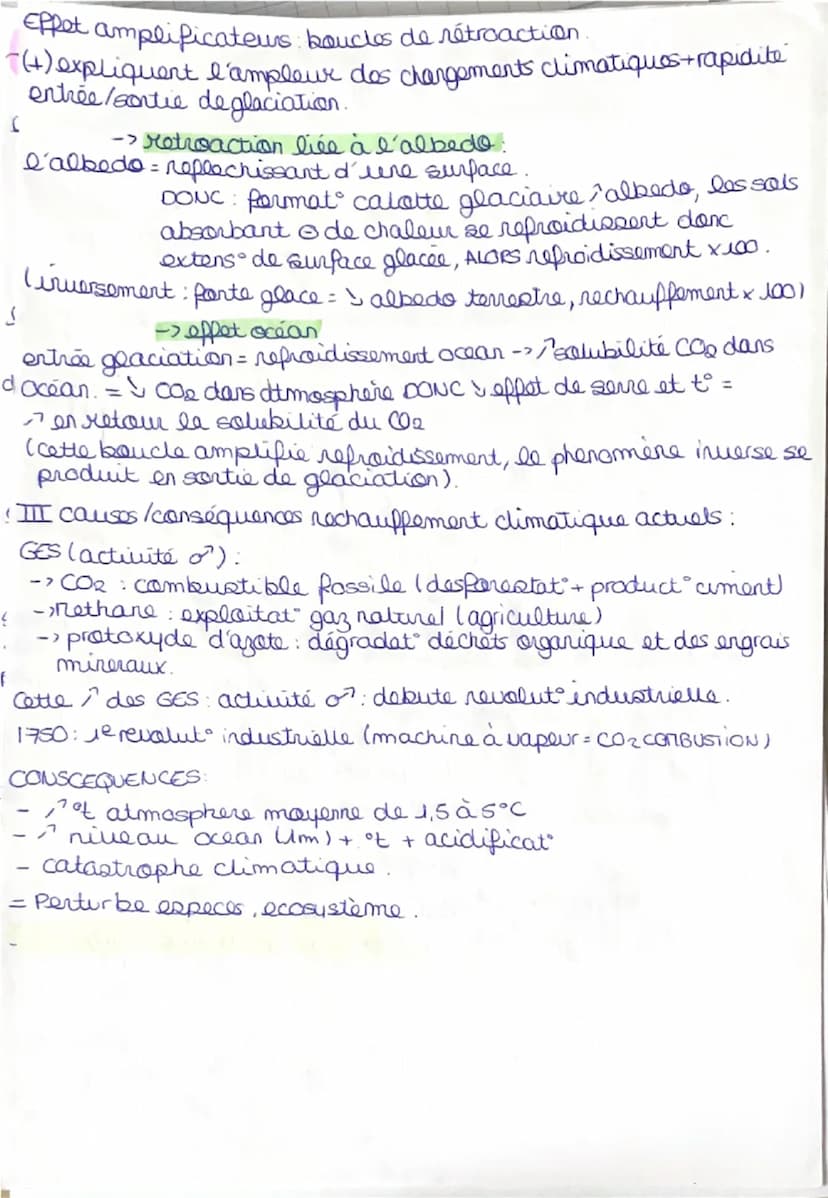 Effet amplificateurs : boucles de rétroaction.
-(+) expliquent l'ampleur des changements climatiques + rapidité
entrée/sortie de glaciation.
-> retroaction liée à l'albedo :
l'albedo = reflechissant d'une surface.
DONC : format° calotte glaciaire ↗ albedo, les sols
absorbant ⊖ de chaleur se refroidissent donc
extens° de surface glacée, ALORS refroidissement x 100.
(inversement : fonte glace = ↘ albedo terrestre, rechauffement x 100)
-> effet océan
entrée glaciation = refroidissement ocean -> ↗ solubilité CO2 dans
océan. = ↘ CO2 dans atmosphere DONC ↘ effet de serre et t° =
↗ en retour la solubilité du CO2
(cette boucle amplifie refroidissement, le phenomène inverse se
produit en sortie de glaciation).
III causes/conséquences rechauffement climatique actuels :
GES (activité ♂) :
-> CO2 : combustible fossile (desforestat° + product° ciment)
-> Methane : exploitat° gaz naturel (agriculture)
-> protoxyde d'azote : dégradat° déchets organique et des engrais
mineraux.
Cette ↗ des GES : activité ♂ : debute revolut° industrielle.
1750 : 1e revolut° industrielle (machine à vapeur = CO2 COMBUSTION)
CONSCEQUENCES :
- ↗ °t atmosphere moyenne de 1,5 à 5°C
- ↗ niveau ocean (1m) + °t + acidificat°
- catastrophe climatique.
= Perturbe especes, ecosystème.
-